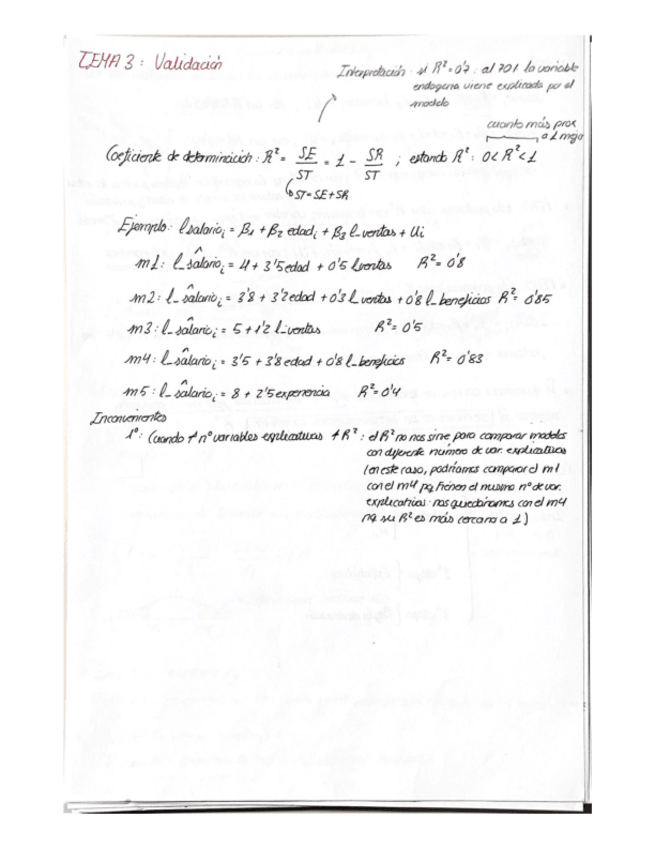 TEMA 3: Validación
Interpretación: si R² = 0'7: al 70% la variable
endogena viene explicada por el
modelo
cuanto más prox
a 1 mejor
Coeficiente de determinación: R² = SE/ST = 1 - SR/ST ; estando R²: 0<R²<1
ST = SE + SR
Ejemplo: l_salario i = β1 + β2 edad i + β3 l_ventas + Ui
m1: l_salarî́o i = 4 + 3'5 edad + 0'5 l_ventas R² = 0'8
m2: l_salarîo i = 3'8 + 3'2 edad + 0'3 L_ventas + 0'8 l_beneficios R² = 0'85
m3: l_salarîo i = 5 + 1'2 l_ventas R² = 0'5
m4: l_salarîo i = 3'5 + 3'8 edad + 0'8 l_beneficios R² = 0'83
m5: l_salarîo i = 8 + 2'5 experiencia R² = 0'4
Inconvenientes
1º: Cuando + nº variables explicativas + R²: el R² no nos sirve para comparar modelos
con diferente número de var. explicativas
(en este caso, podríamos comparar el m1
con el m4 pq tienen el mismo nº de var.
explicativas: nos quedaríamos con el m4
pq su R² es más cercano a 1)